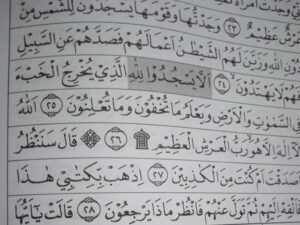 شَيْءٍ وَلَهَا عَرْشٌ عَظِيمٌ ٢٣ وَجَدْتُهَا وَقَوْمَهَا يَسْجُدُونَ لِلشَّمْسِ
دُونِ اللَّهِ وَزَيَّنَ لَهُمُ الشَّيْطٰنُ أَعْمَالَهُمْ فَصَدَّهُمْ عَنِ السَّبِيلِ
فَهُمْ لَا يَهْتَدُونَ ٢٤ أَلَّا يَسْجُدُوا لِلَّهِ الَّذِي يُخْرِجُ الْخَبْءَ
السَّمٰوٰتِ وَالْأَرْضِ وَيَعْلَمُ مَا تُخْفُونَ وَمَا تُعْلِنُونَ ٢٥ اللَّهُ
إِلٰهَ إِلَّا هُوَ رَبُّ الْعَرْشِ الْعَظِيمِ ۩ ٢٦ ۞ قَالَ سَنَنْظُرُ
أَصَدَقْتَ أَمْ كُنْتَ مِنَ الْكٰذِبِينَ ٢٧ اِذْهَبْ بِكِتٰبِي هٰذَا
فَأَلْقِهْ إِلَيْهِمْ ثُمَّ تَوَلَّ عَنْهُمْ فَانْظُرْ مَاذَا يَرْجِعُونَ ٢٨ قَالَتْ يٰأَيُّهَا